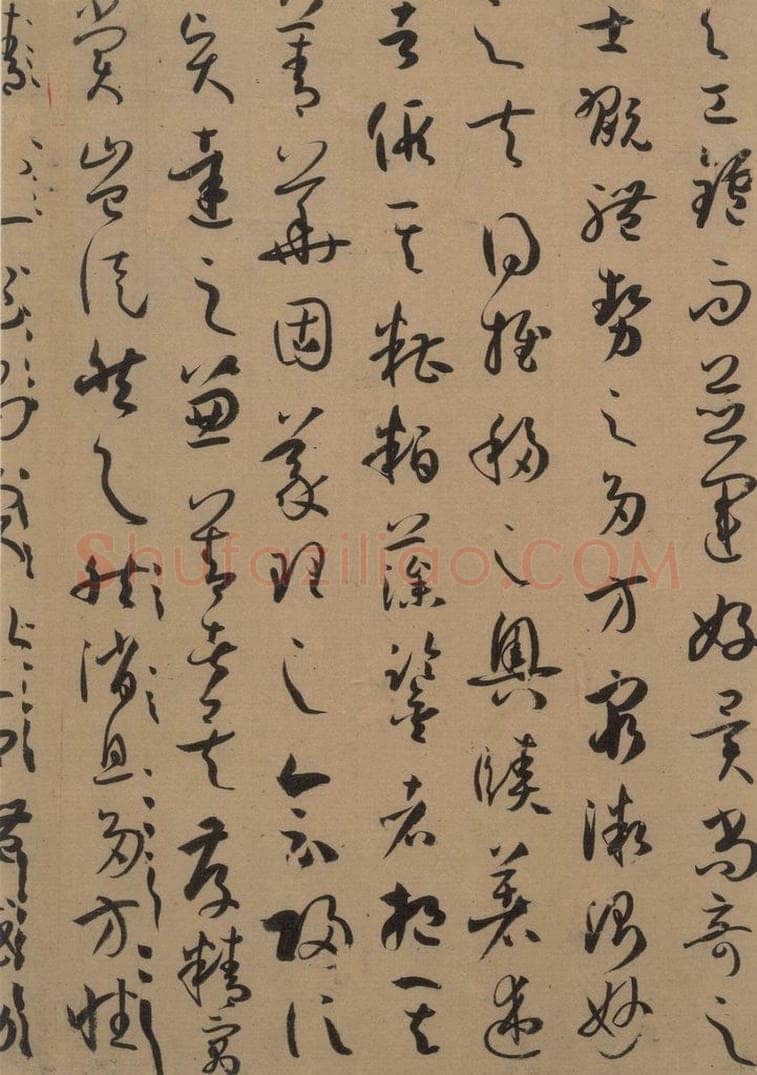 與工鑪而並運好異尚奇之
士翫體勢之多方窮微測妙
之夫得推移之奧賾著述
者假其糟粕藻鑒者挹其
菁華固義理之會歸信
賢達之兼善者矣存精寓
賞豈徒然與然消息多方性
Shufaziliao.COM